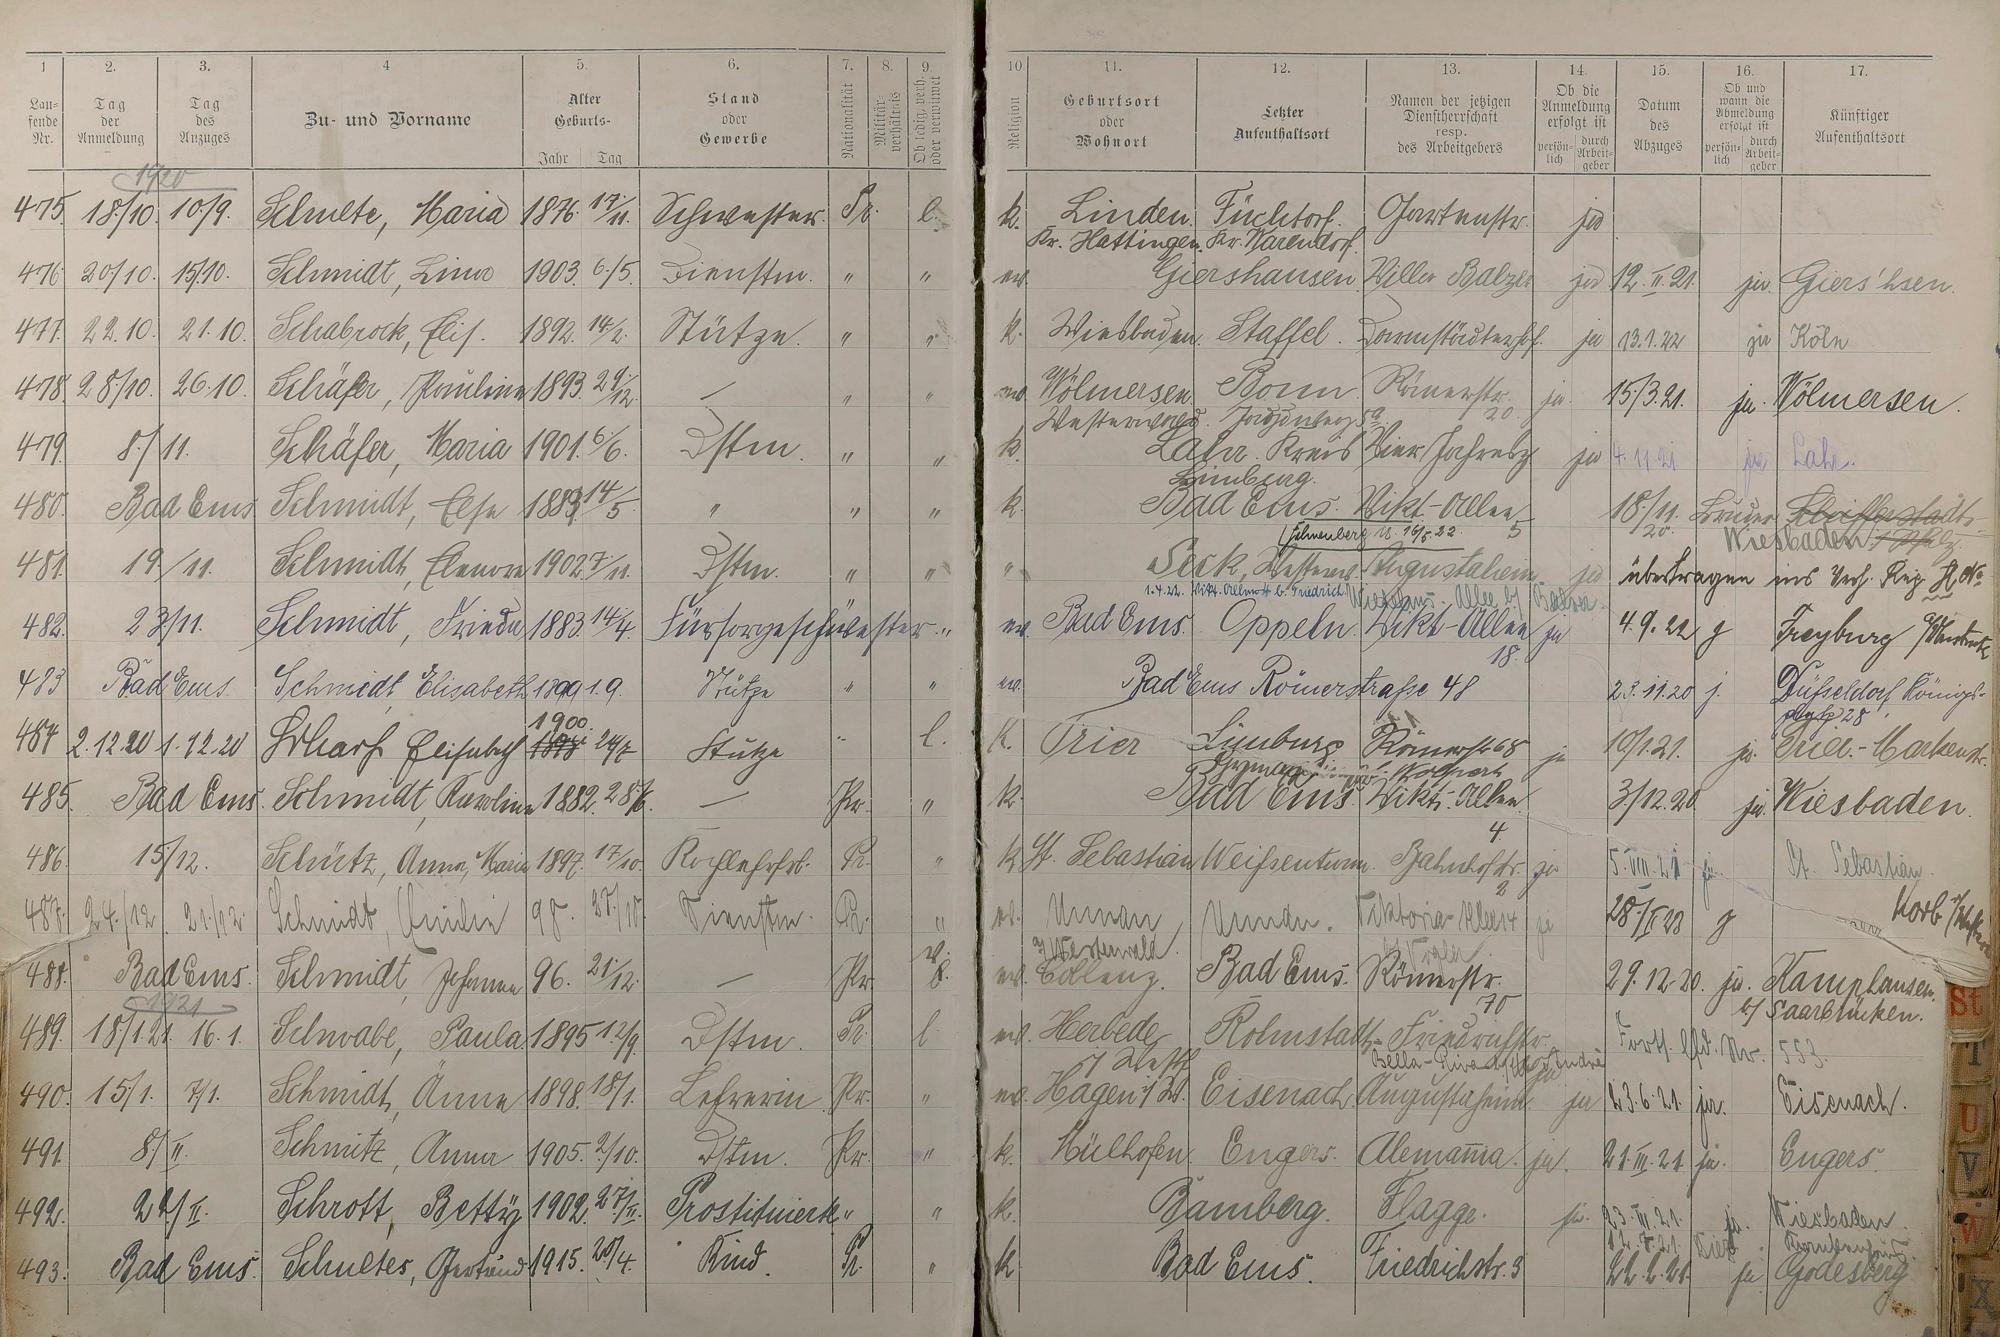 1 2. 3. 4 5. 6. 7. 8. 9. 10 11. 12. 13. 14. 15. 16. 17.
Lau-fende Nr. Tag der Anmeldung Tag des Anzuges Zu- und Vorname Alter Geburts- Jahr Tag Stand oder Gewerbe Nationalität Militär-verhältnis Ob ledig, verh. oder verwitwet Religion Geburtsort oder Wohnort Letzter Aufenthaltsort Namen der jetzigen Dienstherrschaft resp. des Arbeitgebers Ob die Anmeldung erfolgt ist persön-lich durch Arbeit-geber Datum des Abzuges Ob und wann die Abmeldung erfolgt ist persön-lich durch Arbeit-geber Künftiger Aufenthaltsort
1920
475. 18./10. 10./9. Schulte, Maria 1876. 17./11. Schwester. Pr. l. k. Linden. Füchtorf. Gartenstr. ja
Kr. Hattingen. Kr. Warendorf.
476 20/10. 15/10. Schmidt, Lina 1903. 6./5. Dienstm. " " ev. Giershausen. Villa Balzer ja 12. II. 21. ja. Giers'hsen.
477. 22.10. 21.10. Schabrock, Elis. 1892. 14./2. Stütze. " " k. Wiesbaden. Staffel. Darmstädterhof. ja 13.1.22 ja Köln
478. 28/10. 26.10. Schäfer, Pauline 1893. 29./12. — " " ev. Wölmersen Bonn. Römerstr. 20 ja. 15/3.21. ja. Wölmersen.
Westerwald.
479. 8./11. Schäfer, Maria 1901. 6./6. Dstm. " " k. Lahr. Kreis Vier Jahresz ja 4.11.21 ja Lahr.
Limburg.
480. Bad Ems Schmidt, Else 1889. 14/5. " " " k. Bad Ems. Vikt-Allee 5 18./11. 20. Bruder
Wiesbaden
481. 19/11. Schmidt, Elenore 1902. 7/11. Dstm. " " " Seck, Westerw. Augustaheim ja übertragen ins Verh. Reg.
1.4.22.
482. 23/11. Schmidt, Frieda 1883. 14./4. Fürsorgeschwester. " ev. Bad Ems. Oppeln. Vikt-Allee 18. ja 4.9.22 g Freyburg
483 Bad Ems. Schmidt Elisabeth 1899 1.9. Stütze " " ev. Bad Ems Römerstraße 48 23.11.20 j. Düsseldorf Königs-
28
484 2.12.20 1.12.20 Scharf Elisabeth 1900. 24/7 Stütze " l. k. Trier Limburg Römerstr 68 ja 10/1.21. ja. Trier.- Markusstr.
485. Bad Ems. Schmidt, Karoline 1882. 28./6. — Pr. " k. Bad Ems. Vikt.-Allee 4. 3/12.20. ja. Wiesbaden.
486. 15/12. Schütz, Anna, Maria 1897. 17/10. Kochlehrfrl. Pr. " k. St. Sebastian Weißenturm. Bahnhofstr. 2 ja 5. VIII. 21 ja. St. Sebastian.
487. 24./12. 21./12. Schmidt, Emilie 98. 27/10. Dienstm. Pr. " ev. Unnau Unnau. Viktoria-Allee 14 ja 28./II 23 g
Westerwald.
488. Bad Ems. Schmidt, Johanna 96. 21/12. — Pr. ev. Coblenz. Bad Ems. Römerstr. 70 29.12.20. ja. Kamphausen.
b/ Saarbrücken.
1921
489. 18/1.21. 16.1. Schwabe, Paula 1895 12./9. Dstm. Pr. l ev. Herbede Rohnstadt- Friedrichstr. Forts. lfd. Nr. 553.
i/ Westf. Bella-Riva
490. 15/1. 7/1. Schmidt, Änne 1898. 18/1. Lehrerin. Pr. " ev. Hagen i/W. Eisenach Augustaheim. ja 23.6.21. ja. Eisenach.
491. 8/II. Schmitz, Anna 1905. 2/10. Dstm. Pr. " k. Mülhofen. Engers. Alemannia. ja. 21. III. 21 ja. Engers.
492. 22/II. Schrott, Betty 1902. 27/II. Prostituierte " " k. Bamberg. Flagge. ja. 23. III. 21. ja. Wiesbaden.
493. Bad Ems. Schultes, Gertrud 1915. 20/4. Kind. Pr. " k. Bad Ems. Friedrichstr. 3 22.2.21. ja Godesberg
St
T
U
V
W
X